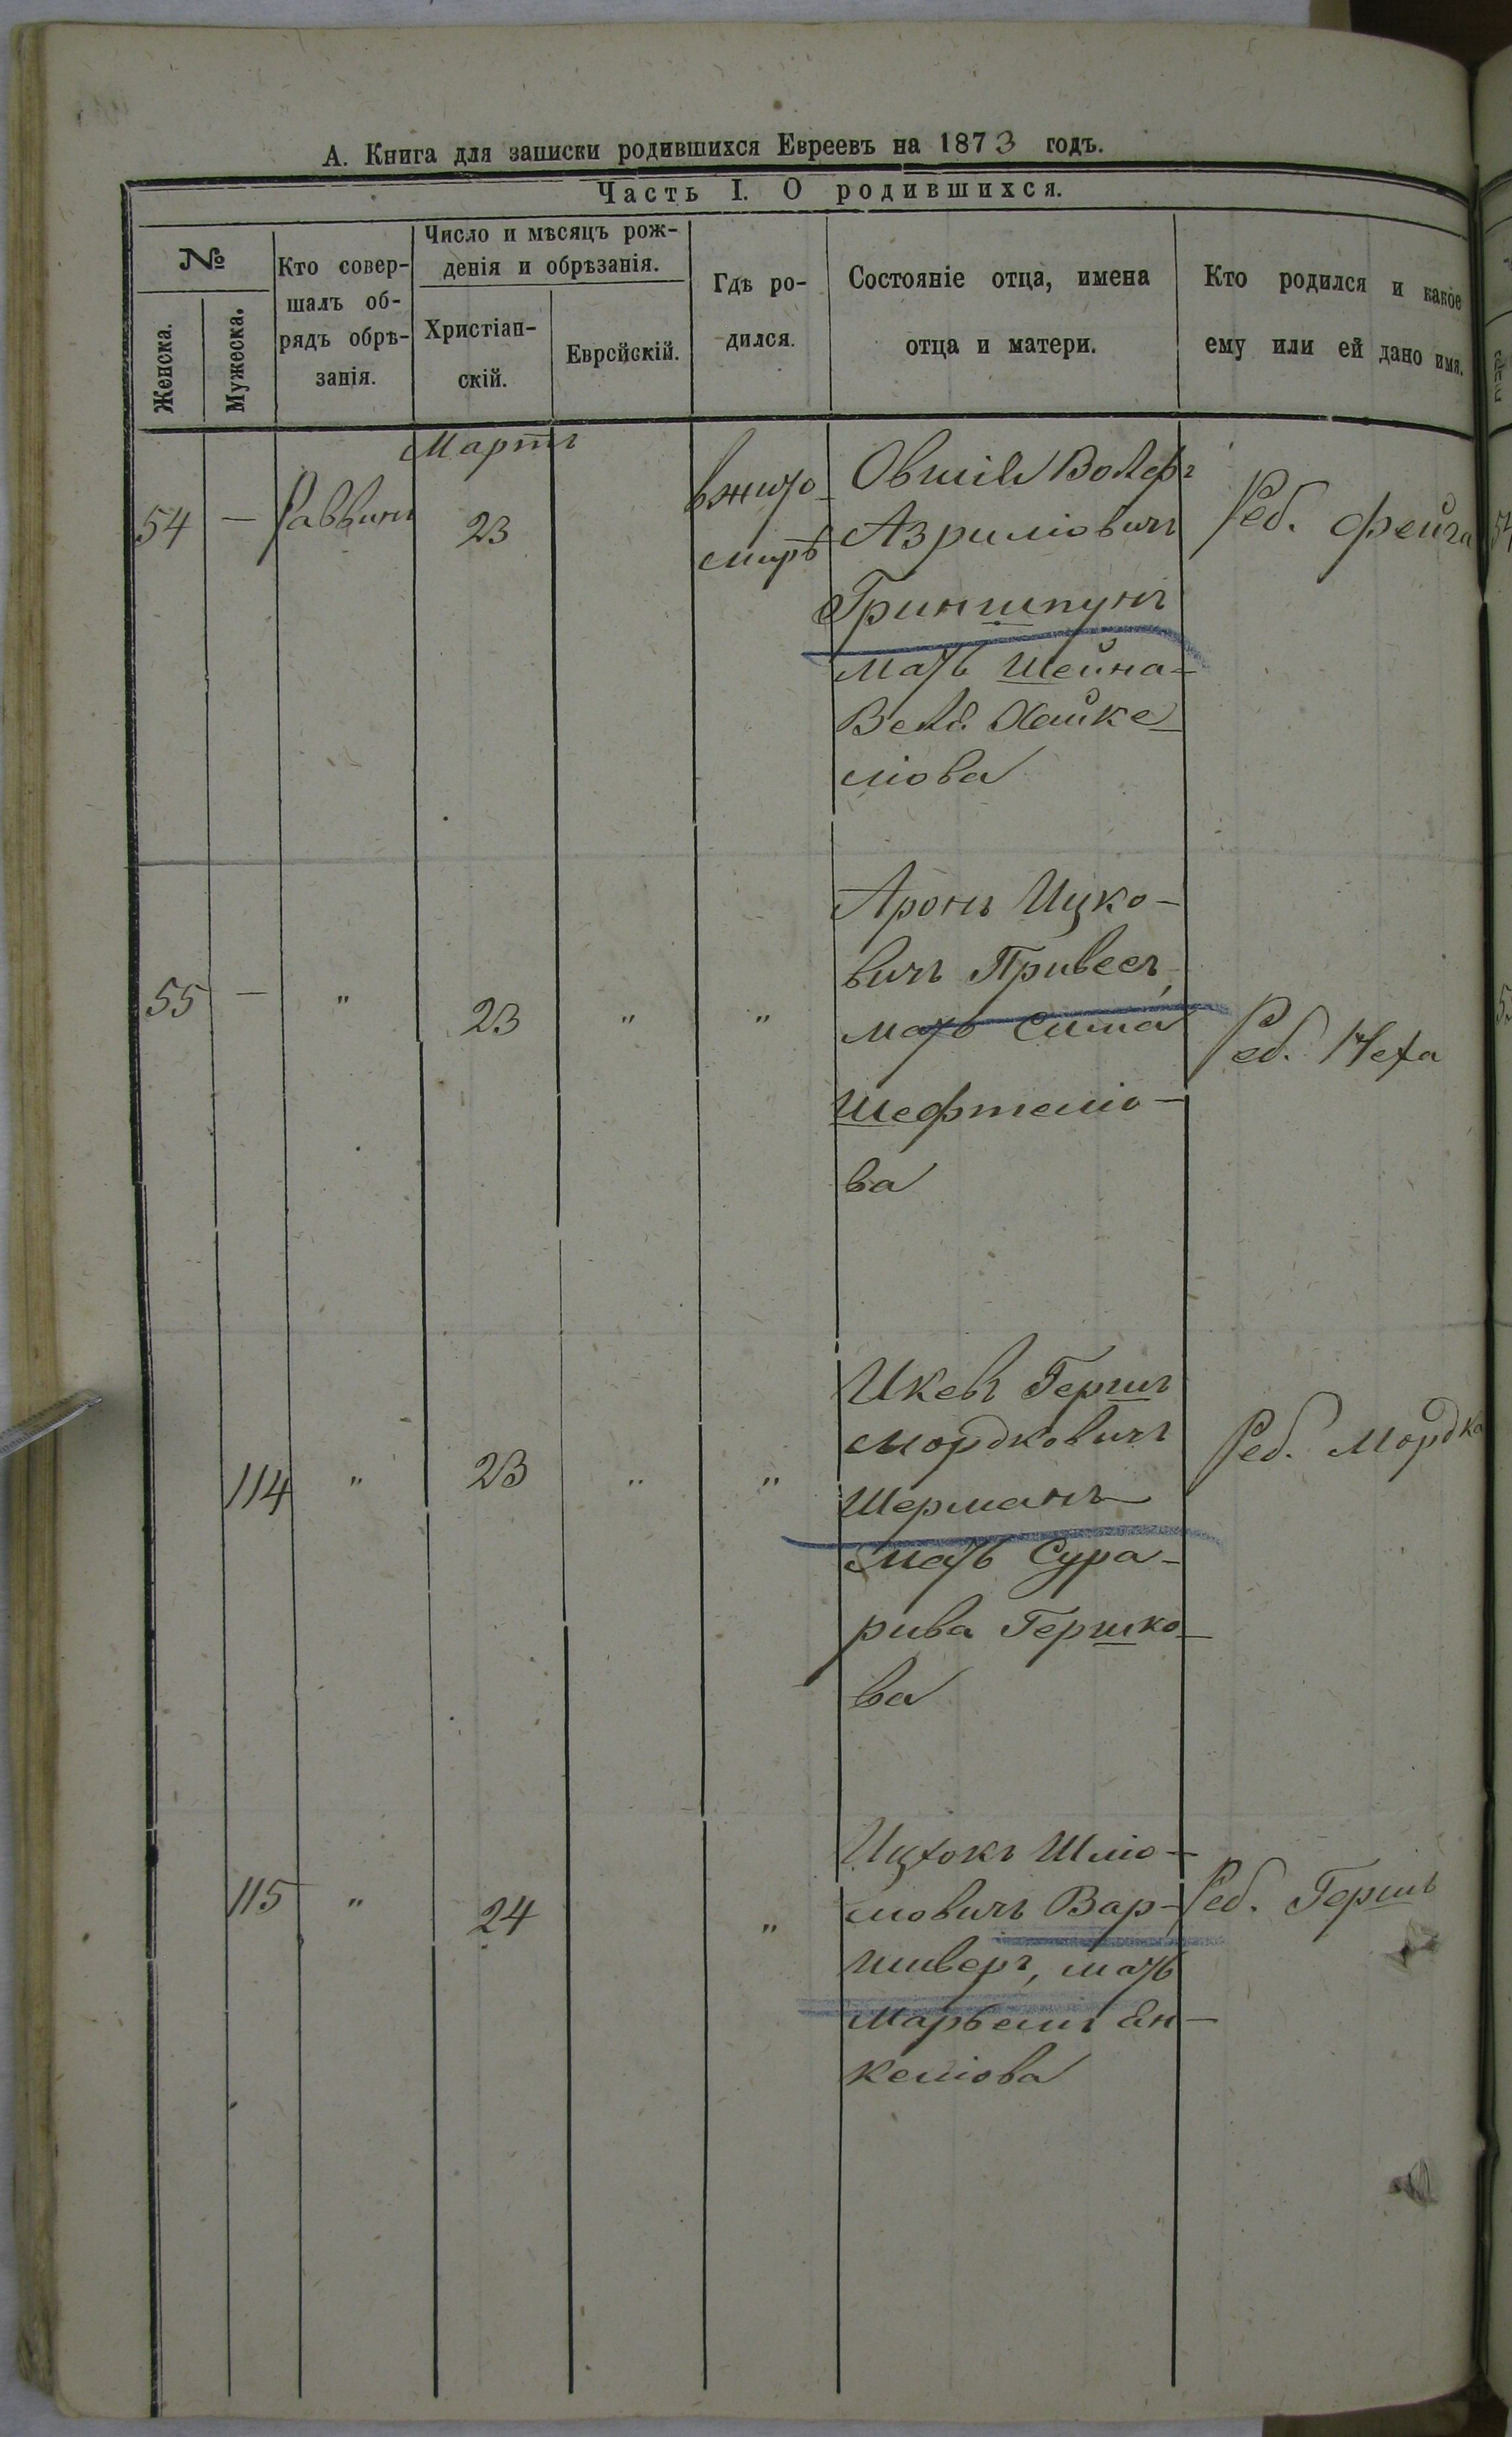 А. Книга для записки родившихся Евреевъ на 1873 годъ.
Часть I. О родившихся.
№
Женска.
Мужеска.
Кто совер-
шалъ об-
рядъ обрѣ-
занія.
Число и мѣсяцъ рож-
денія и обрѣзанія.
Христіан-
скій.
Еврейскій.
Гдѣ ро-
дился.
Состояніе отца, имена
отца и матери.
Кто родился и какое
ему или ей дано имя.
Мартъ
54 — Раввинъ 23
вжито-
мирѣ
Овшія Волфъ
Азриліовичъ
Гриншпунъ
мать Шейна-
Веля Хайке-
ліова
Реб. Фейга
55 — " 23 " "
Аронъ Ицко-
вичъ Привесъ,
мать Сима
Шефтеліо-
ва
Реб. Неха
114 " 23 " "
Икевъ Гершъ
Мордковичъ
Шерманъ
мать Сура-
рива Гершко-
ва
Реб. Мордка
115 " 24 "
Ицхокъ Шлio-
мовичъ Вар-
шиверъ, мать
Марьемъ Ен-
келіова
Реб. Гершъ